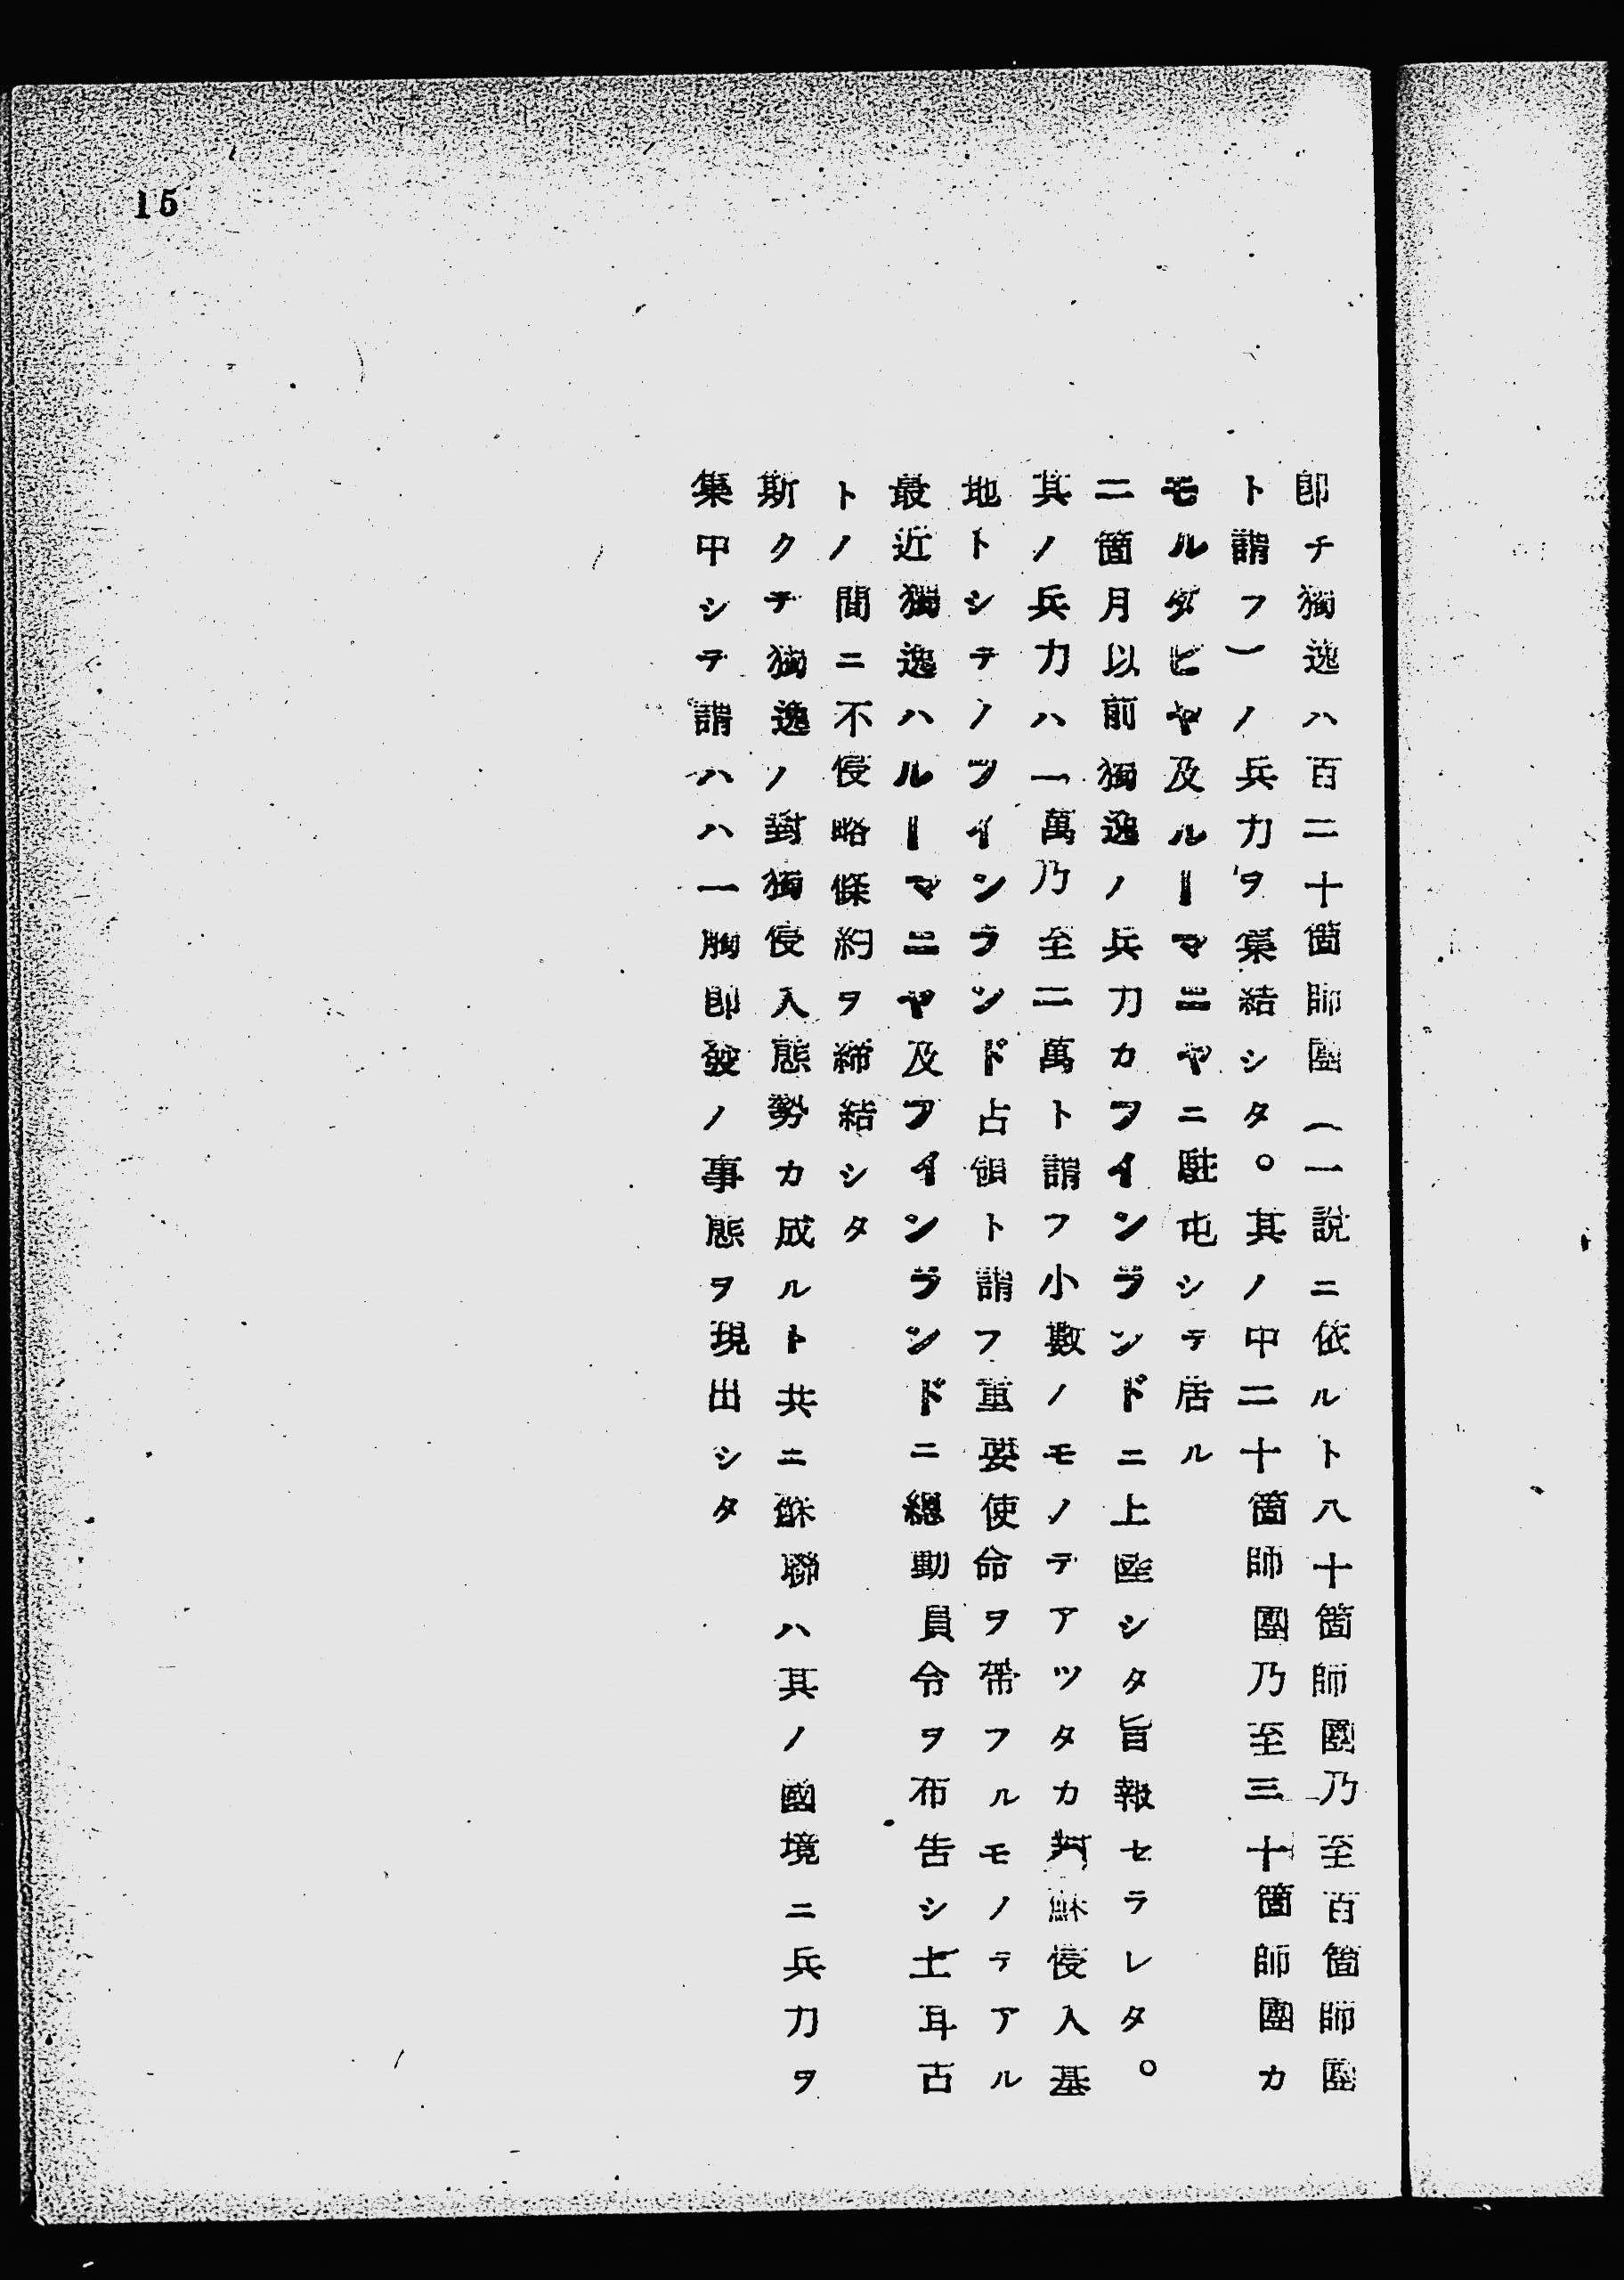 15
卽チ獨逸ハ百二十箇師團（一説ニ依ルト八十箇師團乃至百箇師團
ト謂フ）ノ兵力ヲ集結シタ。其ノ中二十箇師團乃至三十箇師團カ
モルダビヤ及ルーマニヤニ駐屯シテ居ル
二箇月以前獨逸ノ兵力カフインランドニ上陸シタ旨報セラレタ。
其ノ兵力ハ一萬乃至二萬ト謂フ小數ノモノテアツタカ對蘇侵入基
地トシテノフインランド占領ト謂フ重要使命ヲ帶フルモノテアル
最近獨逸ハルーマニヤ及フインランドニ總動員令ヲ布告シ土耳古
トノ間ニ不侵略條約ヲ締結シタ
斯クテ獨逸ノ對獨侵入態勢カ成ルト共ニ蘇聯ハ其ノ國境ニ兵力ヲ
集中シテ謂ハハ一觸卽發ノ事態ヲ現出シタ